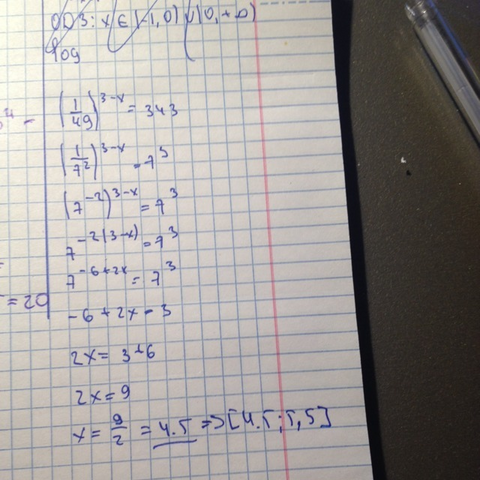 ОДЗ: x ∈ (-1, 0) ∪ (0, +∞)
log
(1/49)^{3-x} = 343
(1/7^2)^{3-x} = 7^3
(7^{-2})^{3-x} = 7^3
7^{-2(3-x)} = 7^3
7^{-6+2x} = 7^3
-6 + 2x = 3
2x = 3+6
= 20
2x = 9
x = 9/2 = 4.5 => [4.5; 5,5]